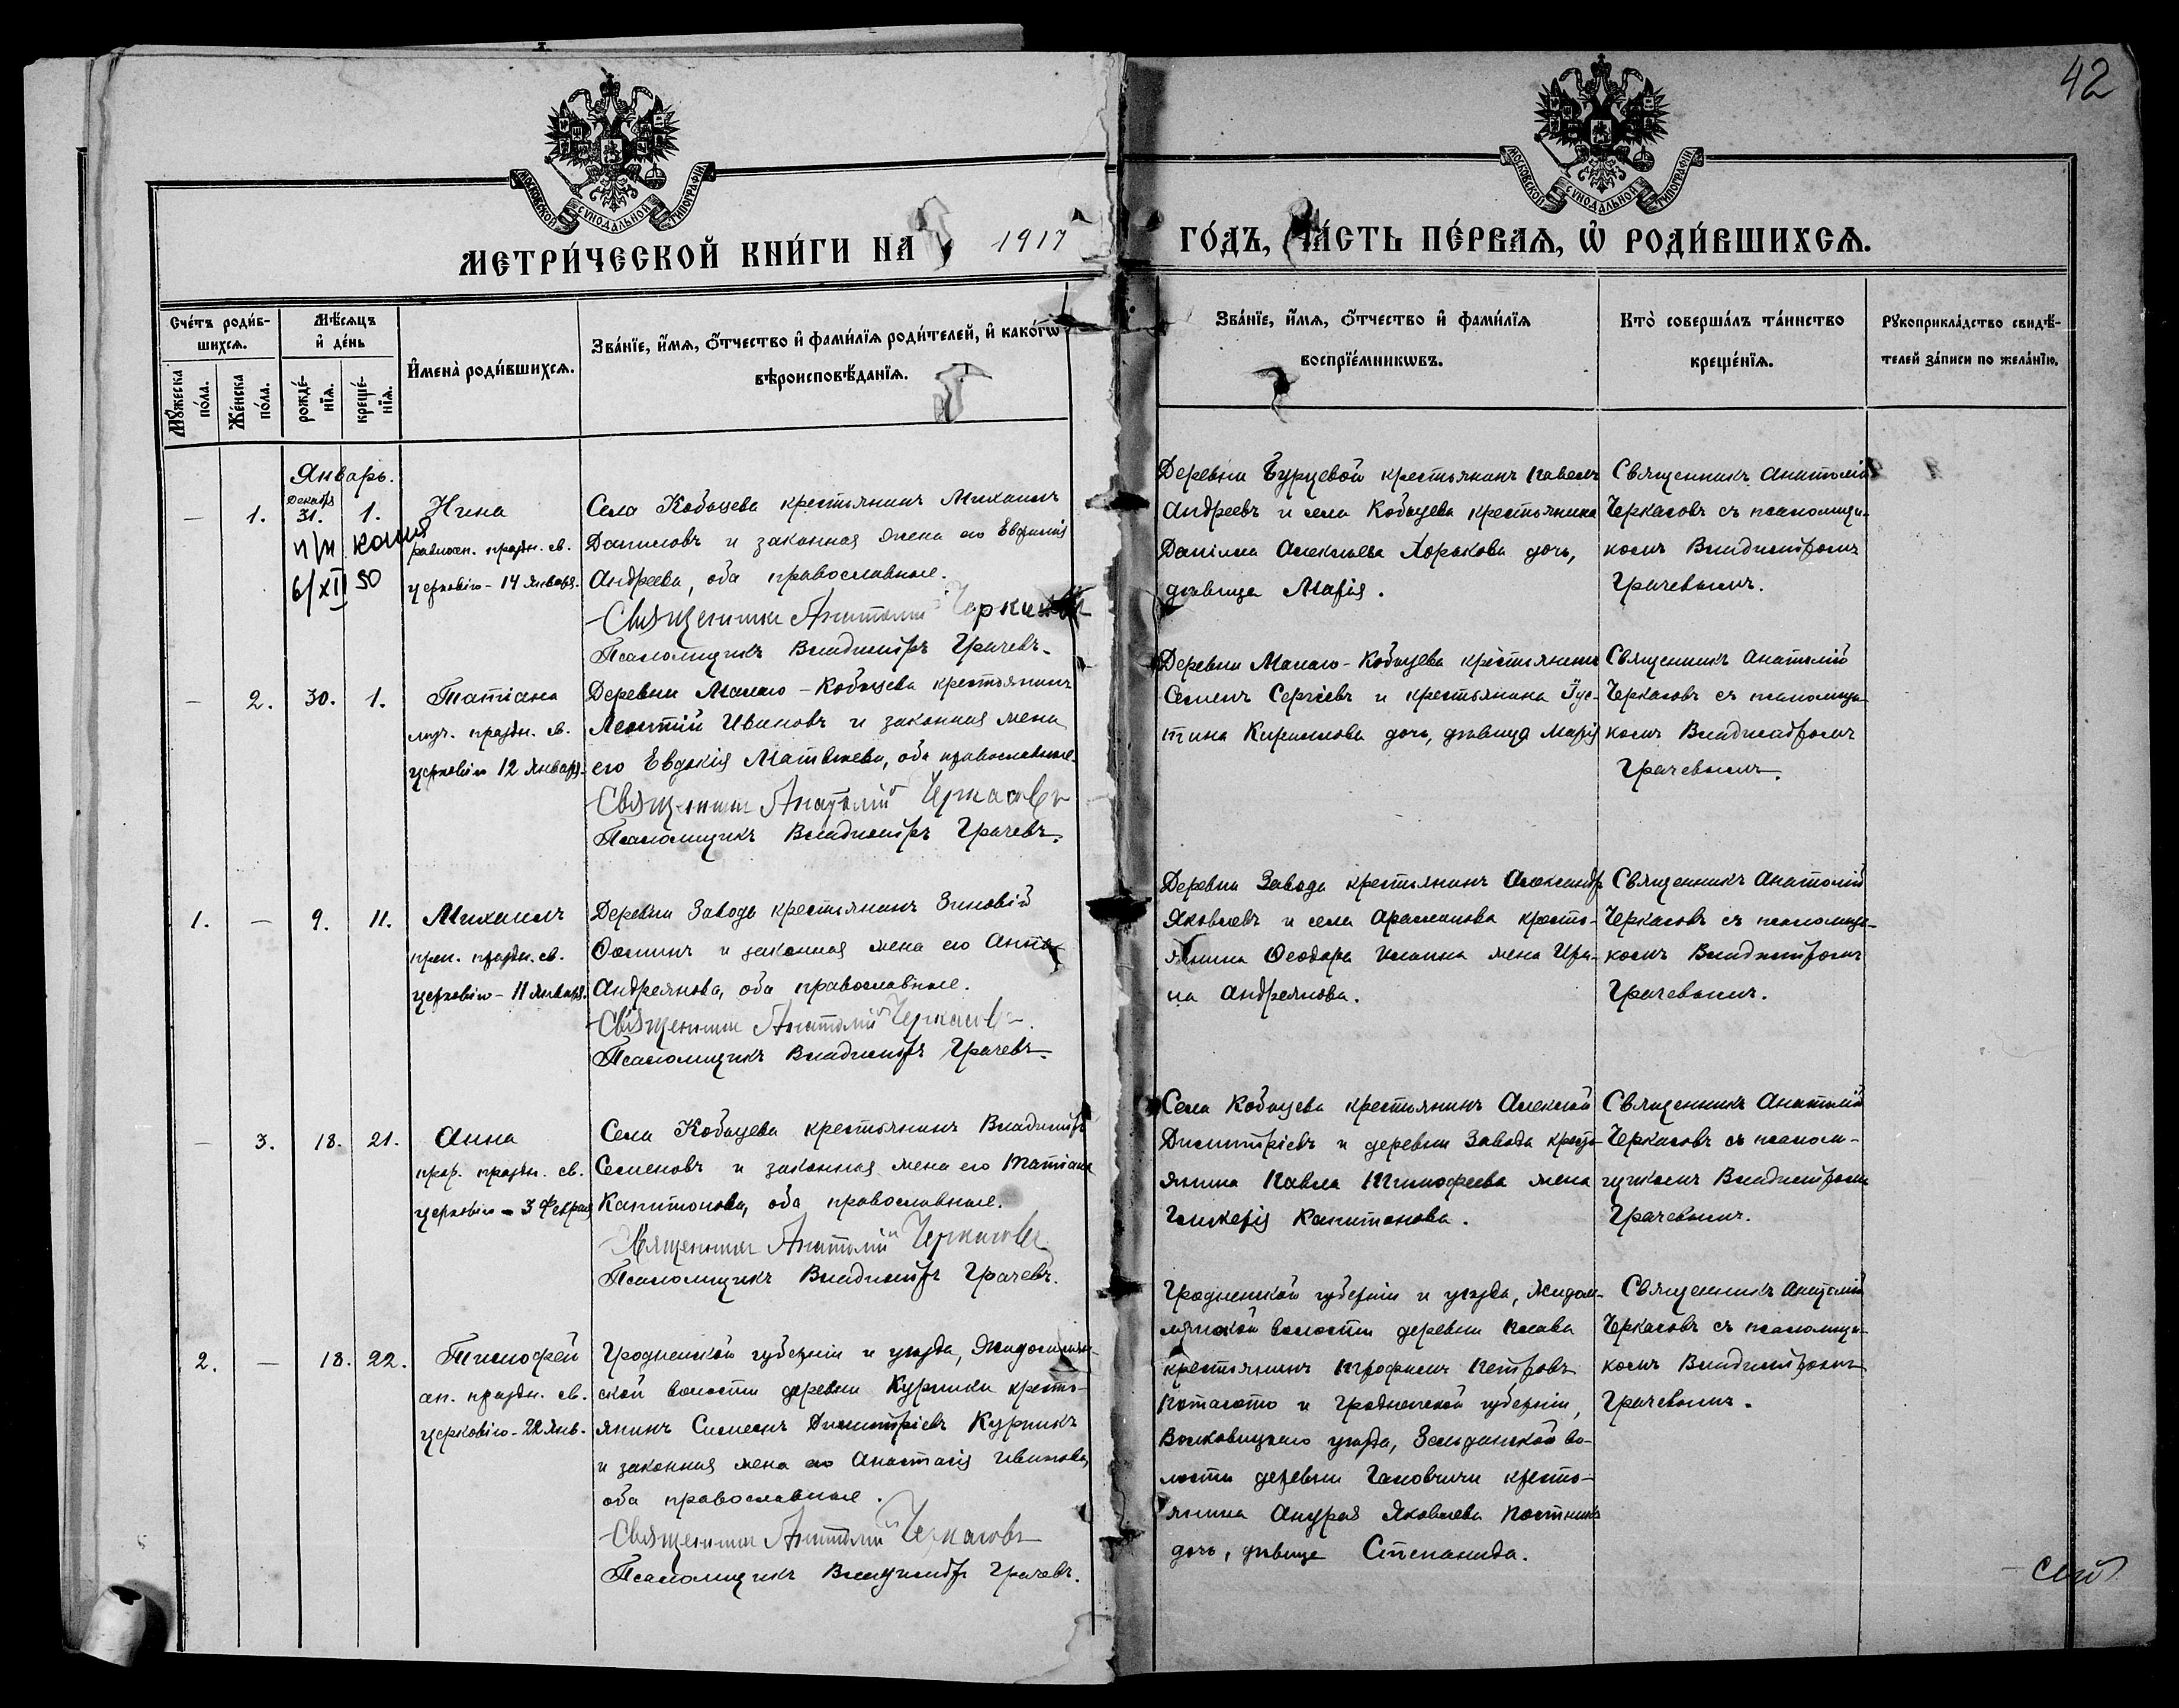 42
МОСКОВСКОЙ СѴНОДАЛЬНОЙ ТИПОГРАФІИ
МОСКОВСКОЙ СѴНОДАЛЬНОЙ ТИПОГРАФІИ
МЕТРИ́ЧЕСКОЙ КНИ́ГИ НА 1917 ГО́ДЪ, ЧА́СТЬ ПЕ́РВАЯ, Ѡ҆ РОДИ́ВШИХСЯ.
Сче́тъ роди́в-
шихся.
Мꙋ́жеска по́ла.
Же́нска по́ла.
Мѣ́сяцъ
и҆ де́нь
рожде́-
нїя.
креще́-
нїя.
И҆мена̀ роди́вшихся.
Зва́нїе, и҆́мя, ѻ҆́тчество и҆ фами́лїя роди́телей, и҆ како́гѡ
вѣроисповѣ́данїя.
Зва́нїе, и҆́мя, ѻ҆́тчество и҆ фами́лїя
воспрїе́мникѡвъ.
Кто̀ соверша́лъ та́инство
креще́нїя.
Рꙋкоприкла́дство свидѣ́-
телей за́писи по жела́нїю.
Январь.
— 1. Декабря 31. 1.
копия
6/XII 50
Нина
равноап. праздн. св.
церковію - 14 января.
Села Кобыцева крестьянинъ Михаилъ
Даниловъ и законная жена его Евфимія
Андреева, оба православные.
Священникъ Анатолій Черкасовъ
Псаломщикъ Владиміръ Грачевъ.
Деревни Бурцевой крестьянинъ Павелъ
Андреевъ и села Кобыцева крестьянина
Даніила Алексѣева Хорькова дочь,
дѣвица Марія.
Священникъ Анатолій
Черкасовъ съ псаломщи-
комъ Владиміромъ
Грачевымъ.
— 2. 30. 1.
Татіана
муч. праздн. св.
церковію 12 января.
Деревни Малаго-Кобыцева крестьянинъ
Леонтій Ивановъ и законная жена
его Евдокія Матвѣева, оба православные.
Священникъ Анатолій Черкасовъ
Псаломщикъ Владиміръ Грачевъ.
Деревни Малаго-Кобыцева крестьянинъ
Семенъ Сергіевъ и крестьянина Іус-
тина Кириллова дочь, дѣвица Марія
Священникъ Анатолій
Черкасовъ съ псаломщи-
комъ Владиміромъ
Грачевымъ.
1. — 9. 11.
Михаилъ
преп. праздн. св.
церковію - 11 января.
Деревни Заводъ крестьянинъ Зиновій
Ѳоминъ и законная жена его Анна
Андреянова, оба православные.
Священникъ Анатолій Черкасовъ.
Псаломщикъ Владиміръ Грачевъ.
Деревни Завода крестьянинъ Александръ
Яковлевъ и села кресть-
янина Ѳеодора Ильина жена Ири-
на Андреянова.
Священникъ Анатолій
Черкасовъ съ псаломщи-
комъ Владиміромъ
Грачевымъ.
— 3. 18. 21.
Анна
прор. праздн. св.
церковію - 3 февраля
Села Кобыцева крестьянинъ Владиміръ
Семеновъ и законная жена его Татіана
Капитонова, оба православные.
Священникъ Анатолій Черкасовъ
Псаломщикъ Владиміръ Грачевъ.
Села Кобыцева крестьянинъ Алексѣй
Димитріевъ и деревни Завода кресть-
янина Павла Тимофеева жена
Гликерія Капитонова.
Священникъ Анатолій
Черкасовъ съ псалом-
щикомъ Владиміромъ
Грачевымъ.
2. — 18. 22.
Тимофей
ап. праздн. св.
церковію - 22 янв.
Гродненской губерніи и уѣзда, Жидомлян-
ской волости деревни Курпики кресть-
янинъ Симеонъ Димитріевъ Курпикъ
и законная жена его Анастасія Иванова,
оба православные.
Священникъ Анатолій Черкасовъ
Псаломщикъ Владиміръ Грачевъ.
Гродненской губерніи и уѣзда, Жидом-
лянской волости деревни
крестьянинъ Трофимъ Петровъ
и Гродненской губерніи,
Волковицкаго уѣзда, во-
лости деревни кресть-
янина Андрея Яковлева
дочь, дѣвица Степанида.
Священникъ Анатолій
Черкасовъ съ псаломщи-
комъ Владиміромъ
Грачевымъ.